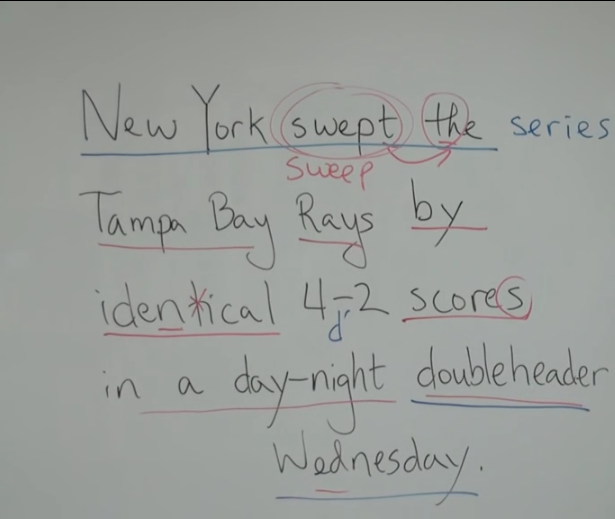 New York swept the series
sweep
Tampa Bay Rays by
identical 4-2 scores
d
in a day-night doubleheader
Wednesday.